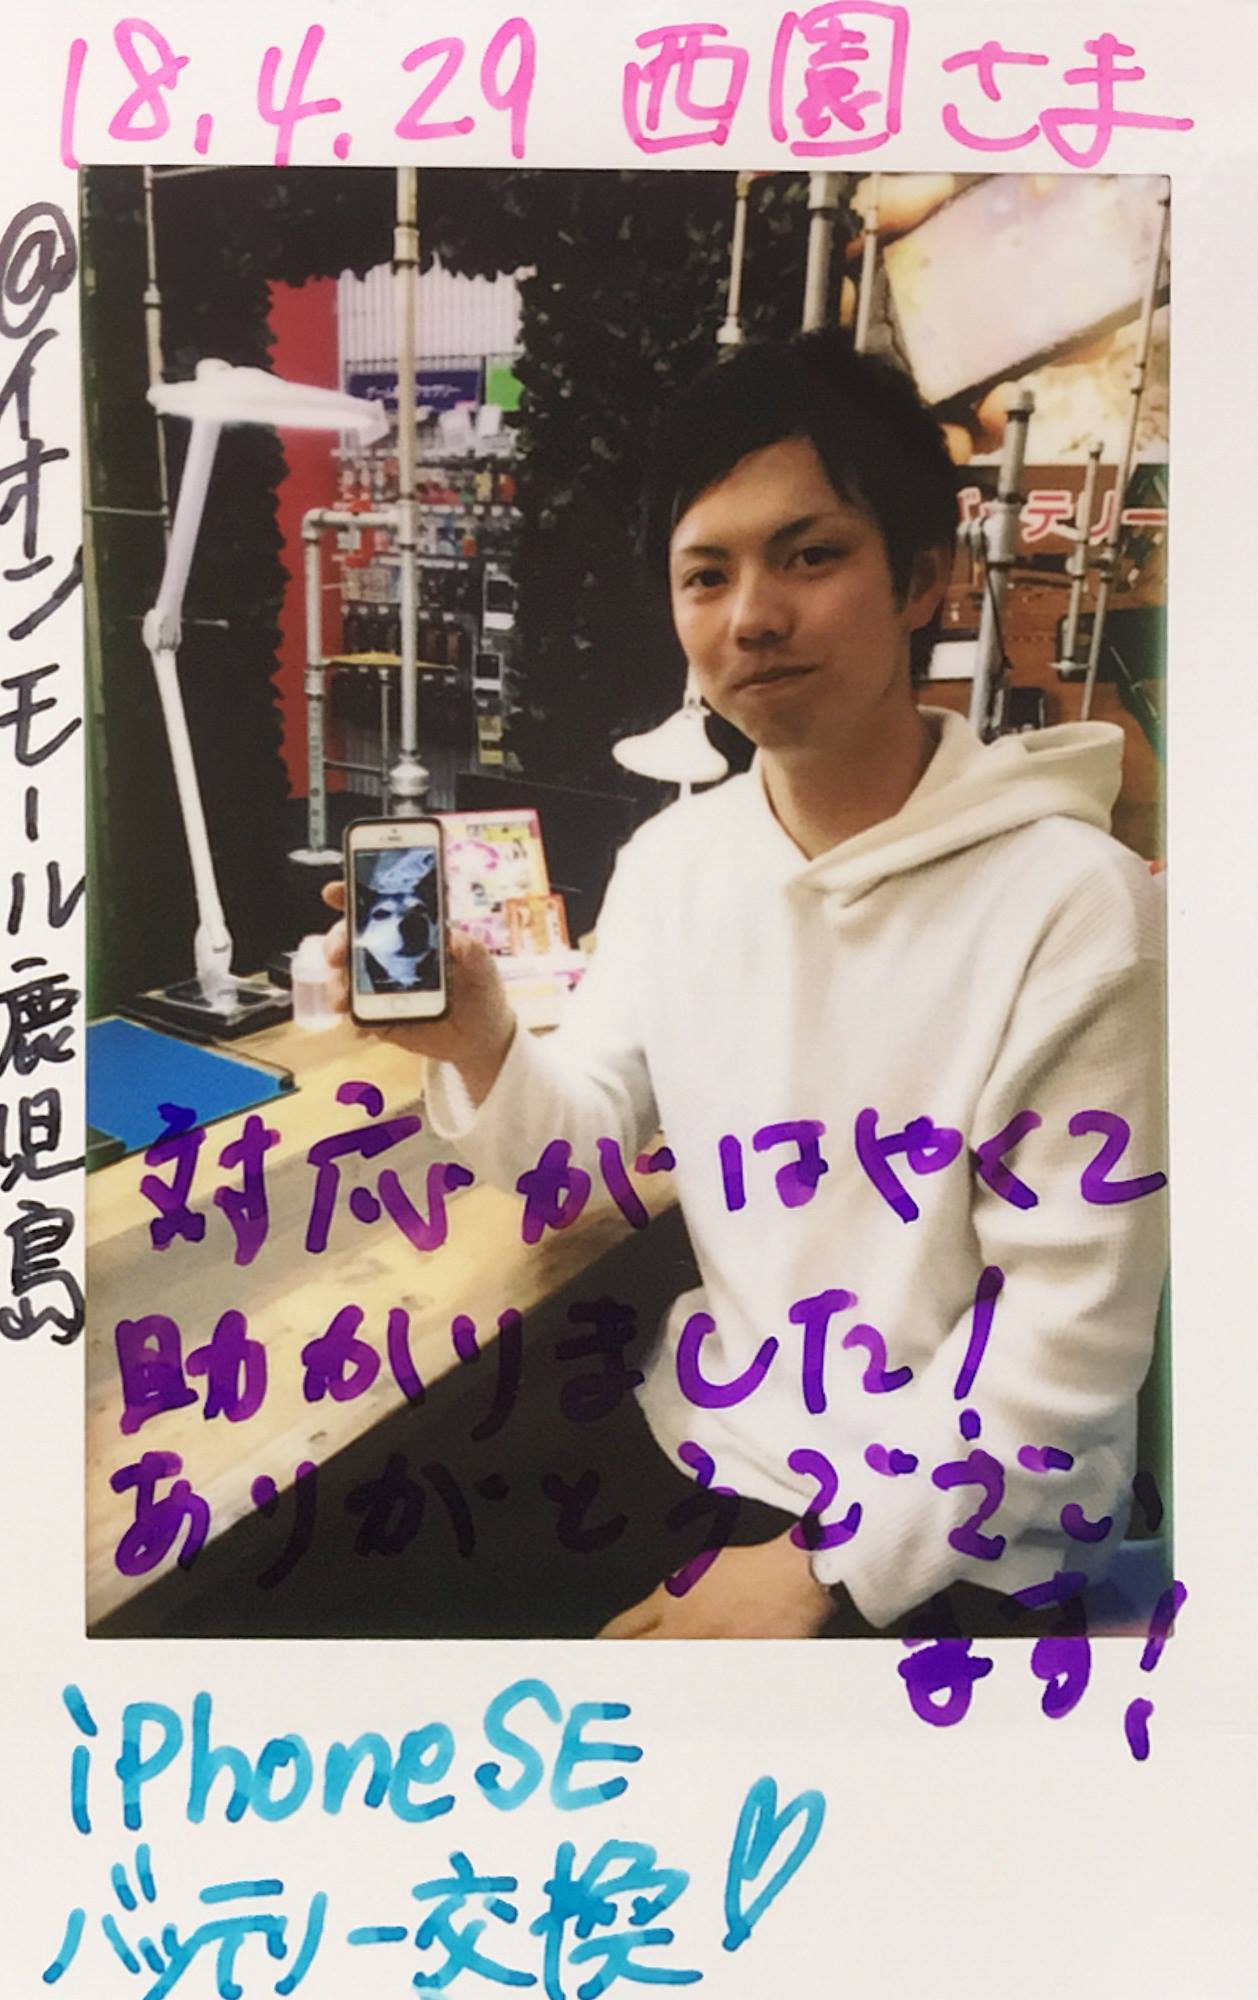 18.4.29 西園さま
@イオンモール鹿児島
バッテリー
対応がはやくて
助かりました!
ありがとうござい
ます!
iPhoneSE
バッテリー交換